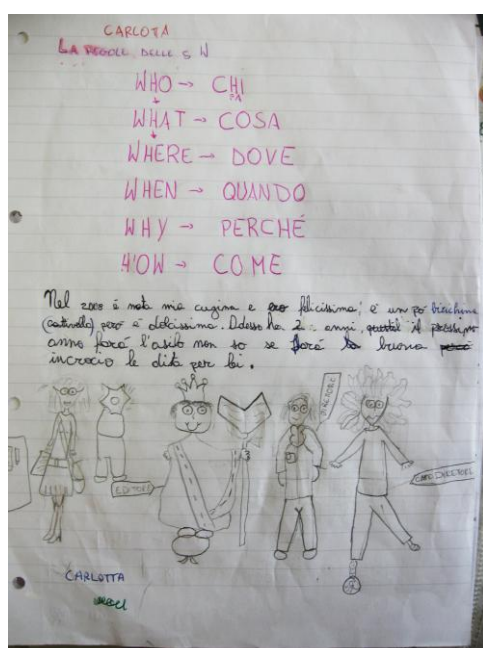 CARLOTA
LA REGOLA DELLE 5 W
WHO → CHI
FA
WHAT → COSA
WHERE → DOVE
WHEN → QUANDO
WHY → PERCHÉ
HOW → COME
Nel è nata mia cugina e ero felicissima; è un po birichina
(cattivella) però è dolcissima. Adesso ha 2 anni, il prossimo
anno farà l'asilo non so se farà la buona
incrocio le dita per lei.
EDITORE
CAPO DIRETTORE
CARLOTTA